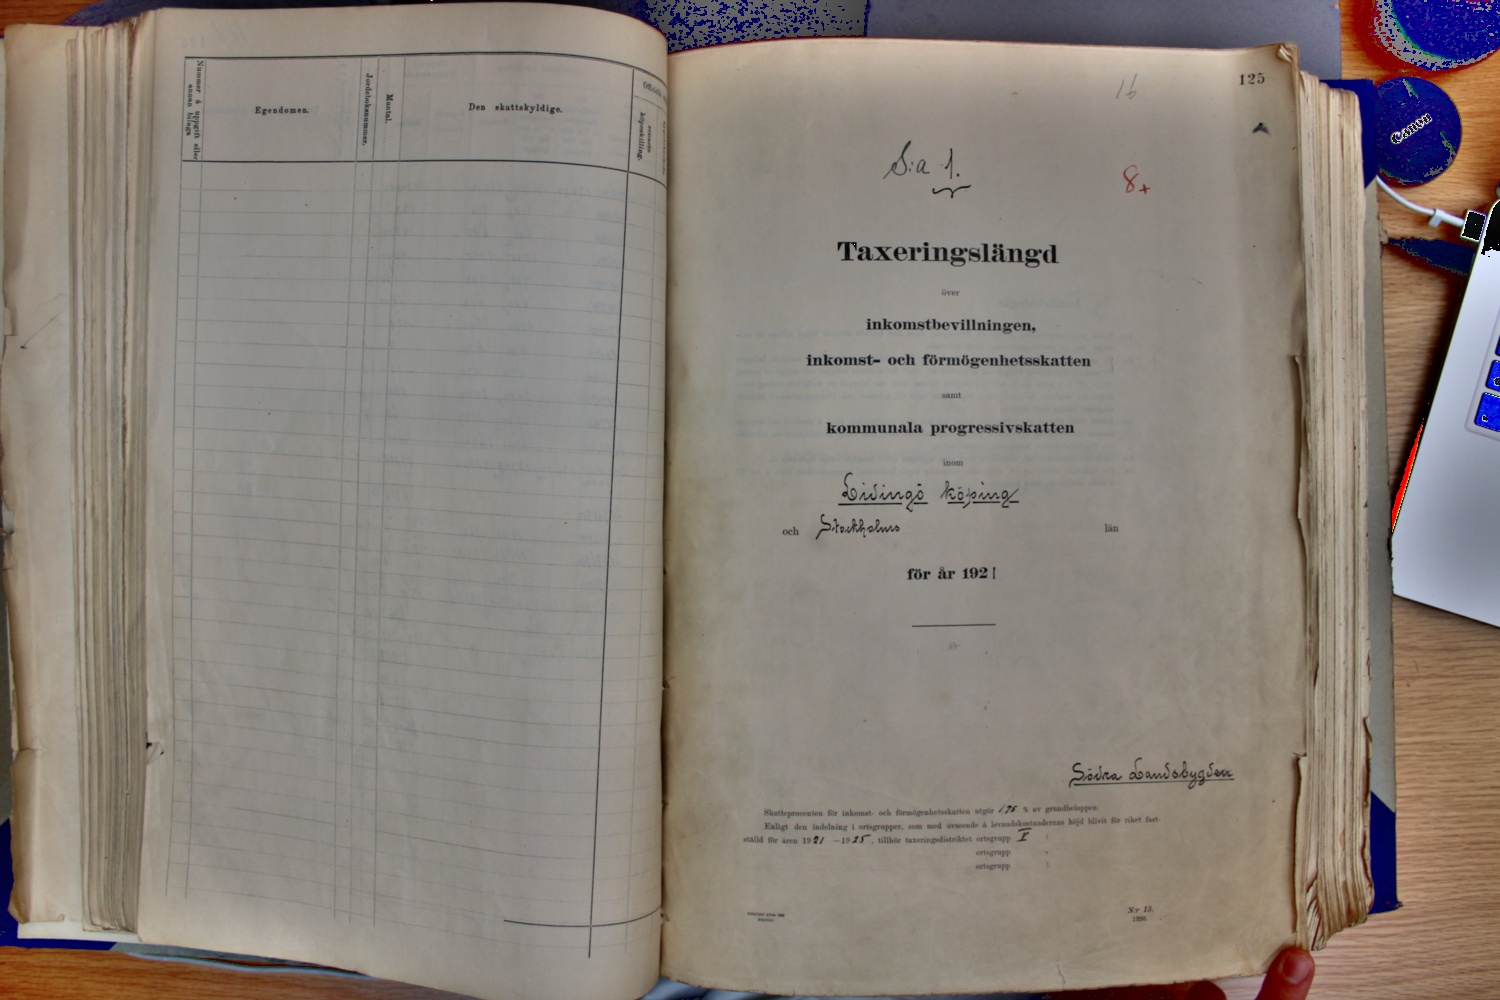 Nummer å uppgift eller annan bilaga
Egendomen.
Jordeboksnummer.
Mantal.
Den skattskyldige.
16
125
S:a 1.
8+
Taxeringslängd
över
inkomstbevillningen,
inkomst- och förmögenhetsskatten
samt
kommunala progressivskatten
inom
Lidingö köping
och Stockholms län
för år 1921
Södra Landsbygden
Skatteprocenten för inkomst- och förmögenhetsskatten utgör 175 % av grundbeloppen.
Enligt den indelning i ortsgrupper, som med avseende å levnadskostnadernas höjd blivit för riket fast-
ställd för åren 1921—1925, tillhör taxeringsdistriktet ortsgrupp V
ortsgrupp
ortsgrupp
N:r 13.
1920.
Canon